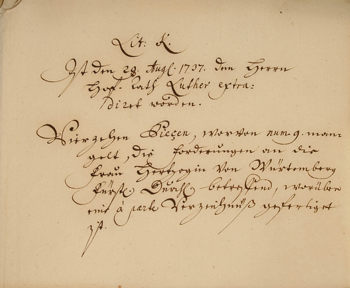 Lit. K.
Ist den 28. Aug. 1737. dem Herrn
Hof-Rath Luther extra-
diret worden.
Vierzehen Piecen, worvon num. 9. man-
gelt, die Forderungen an die
Frau Hertzogin von Würtemberg
Fürstl. Durchl. betreffend, worüber
ein à parte Verzeichnuß gefertiget
ist.